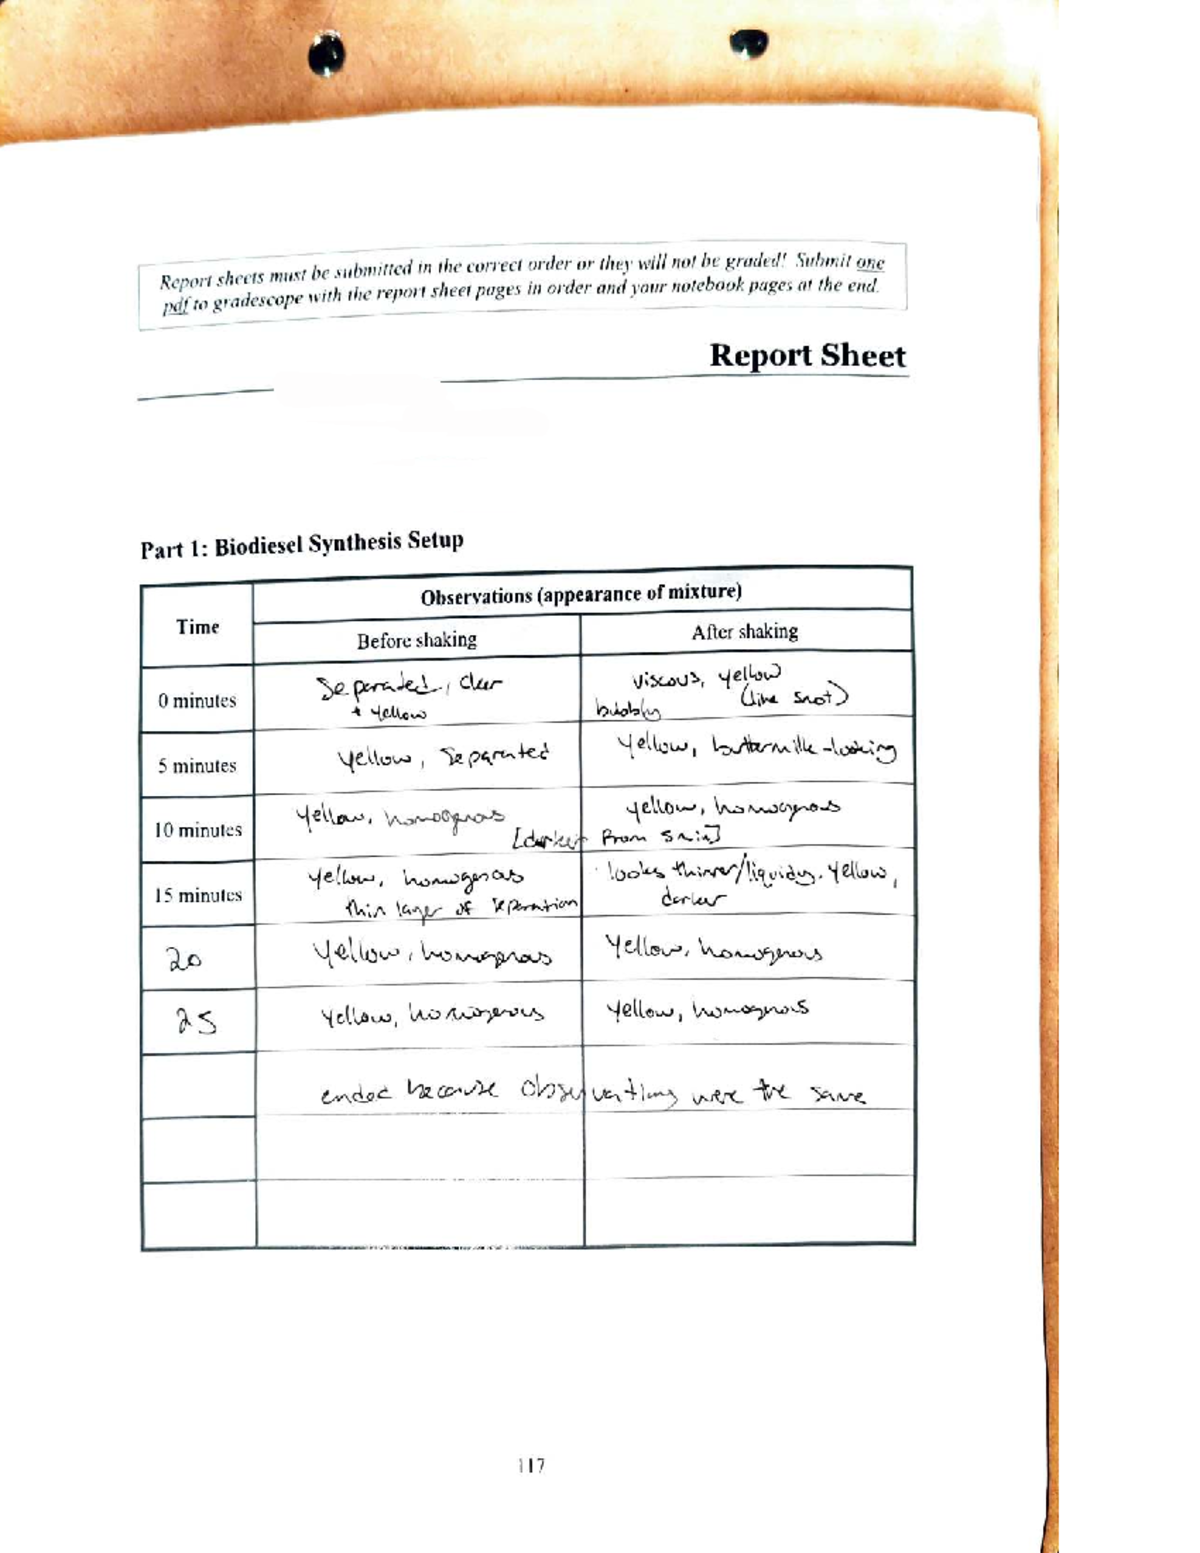 Report sheets must be submitted in the correct order or they will not be graded! Submit one
pdf to gradescope with the report sheet pages in order and your notebook pages at the end.
Report Sheet
Part 1: Biodiesel Synthesis Setup
Time
Observations (appearance of mixture)
Before shaking
After shaking
0 minutes
Separated, clear
+ yellow
viscous, yellow
bubbly (like snot)
5 minutes
yellow, separated
yellow, buttermilk-looking
10 minutes
yellow, homogenous
yellow, homogenous
[darker from 5 min]
15 minutes
yellow, homogenous
thin layer of separation
looks thinner/liquidy. yellow,
darker
20
Yellow, homogenous
Yellow, homogenous
25
yellow, homogenous
yellow, homogenous
ended because observations were the same
117